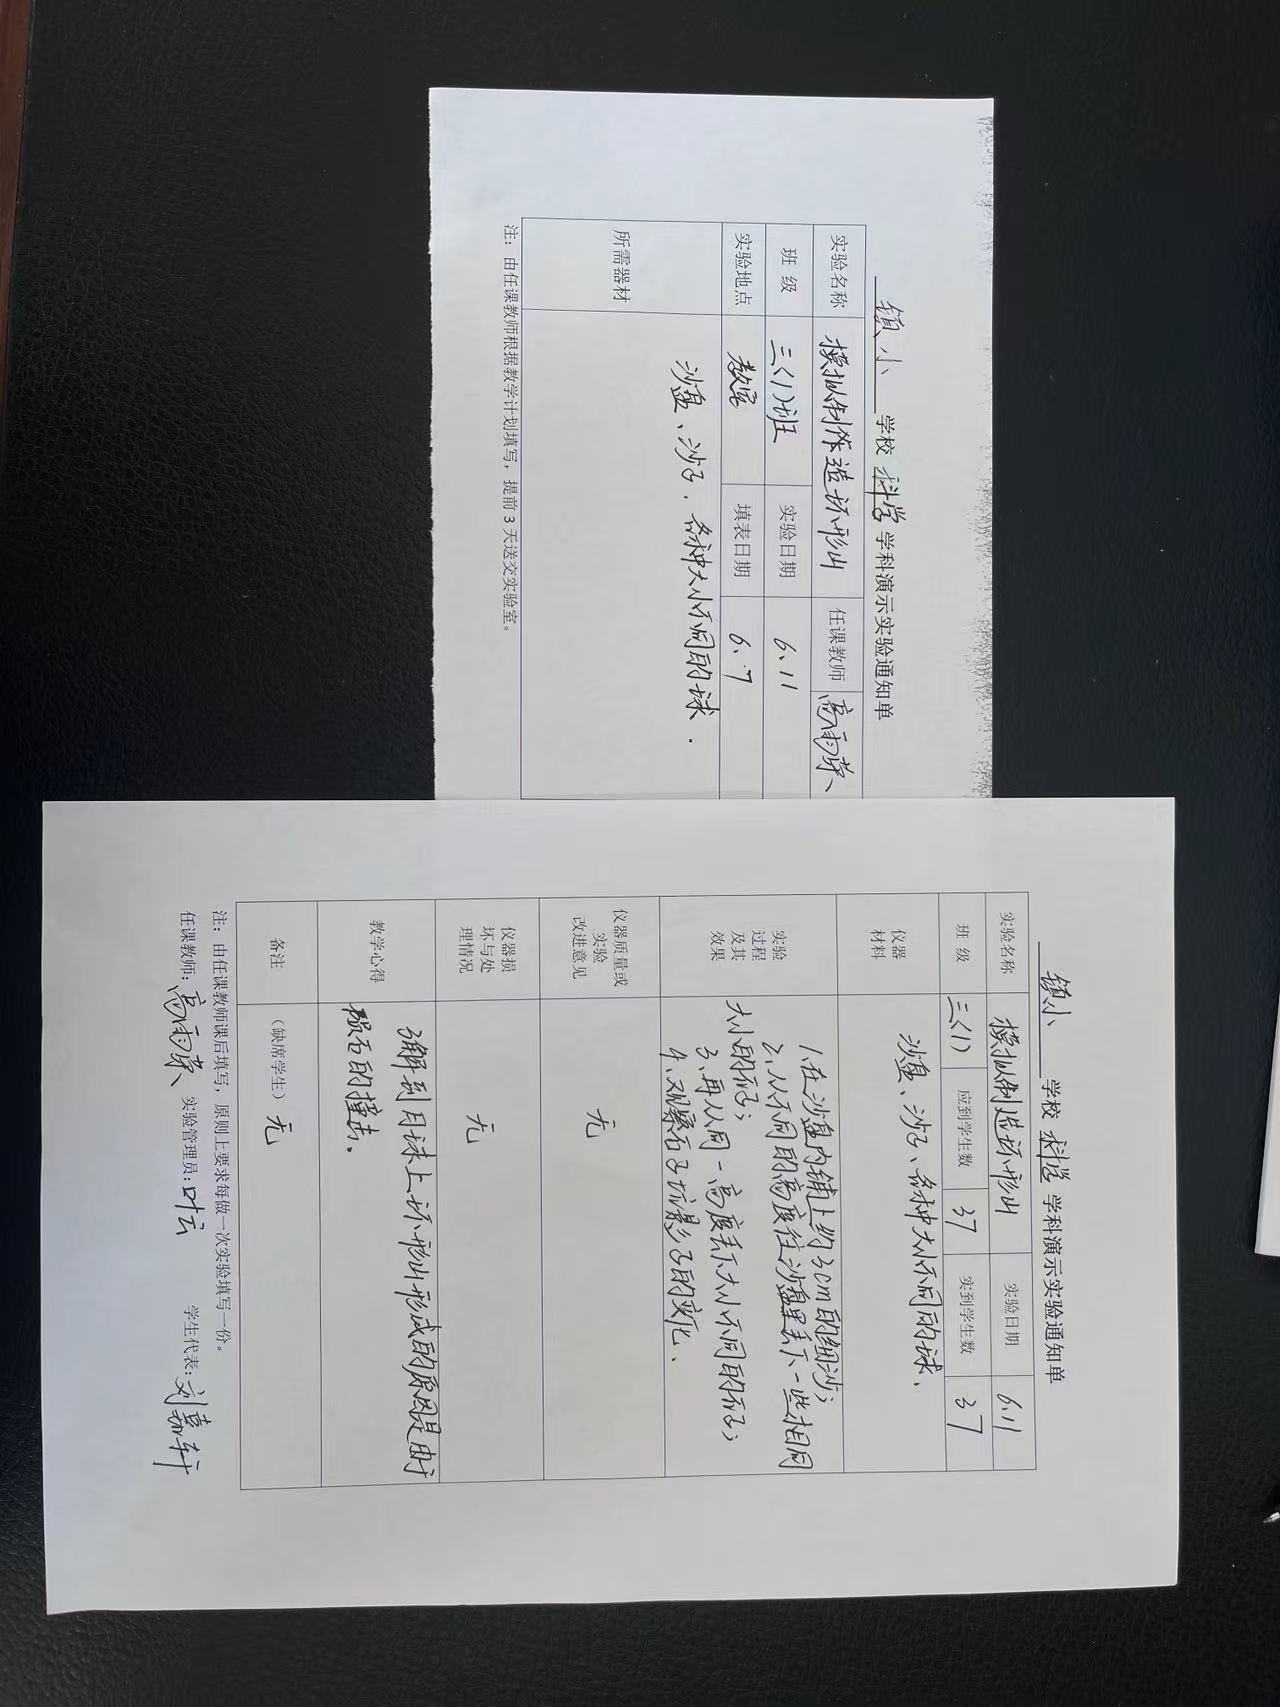 镇小 学校 科学 学科演示实验通知单
实验名称 模拟制作造环形山 任课教师 高雨荣
班 级 三(1)班 实验日期 6.11
实验地点 教室 填表日期 6.7
所需器材 沙盘、沙子、各种大小不同的球.
注：由任课教师根据教学计划填写，提前 3 天送交实验室。
镇小 学校 科学 学科演示实验通知单
实验名称 模拟制造环形山 实验日期 6.11
班 级 三(1) 应到学生数 37 实到学生数 37
仪器
材料
沙盘、沙子、各种大小不同的球.
实验
过程
及其
效果
1.在沙盘内铺上约3cm的细沙;
2.从不同的高度往沙盘里丢下一些相同
大小的石子;
3.再从同一高度丢下大小不同的石子;
4.观察石子坑影子的变化.
仪器质量或
实验
改进意见
无
仪器损
坏与处
理情况
无
教学心得
了解到月球上环形山形成的原因是由于
陨石的撞击.
备注 （缺席学生）无
注：由任课教师课后填写，原则上要求每做一次实验填写一份。
任课教师:高雨荣 实验管理员:叶云 学生代表:刘嘉轩